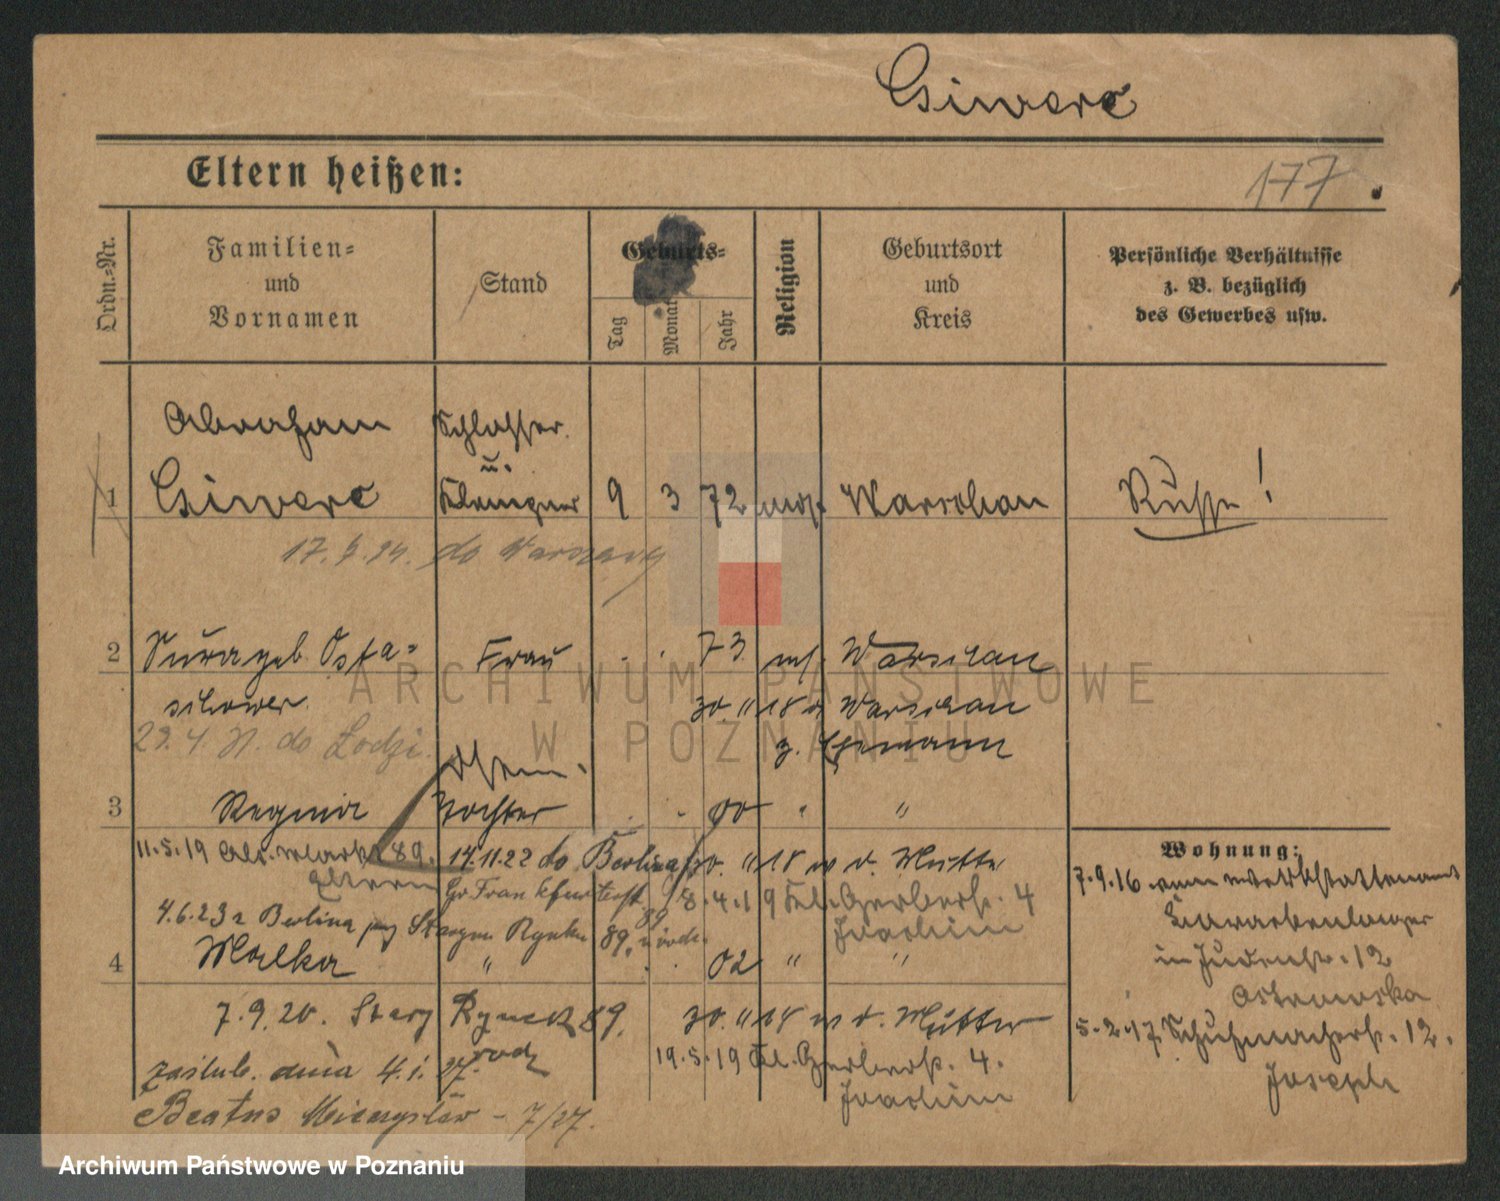 Giwerc
Eltern heißen:
177.
Ordn.-Nr.
Familien-
und
Vornamen
Stand
Geburts-
Tag
Monat
Jahr
Religion
Geburtsort
und
Kreis
Persönliche Verhältnisse
z. B. bezüglich
des Gewerbes usw.
Abraham Schlosser
u.
1 Giwerc Klempner 9 3 72 mos. Warschau Russe!
do Warszawy
2 Sura geb. Frau 73 Warschau
30. 11 18 Warschau
29. 4. do Łodzi. z. Ehemann
3 Regina Tochter 00 " "
11.5.19 Alt. Markt 89. 14.11.22 do Berlina 30. 11 18 d. Mutter
Eltern
8.4.19 Kl. Gerberstr. 4
Joachim
4.6.23 z Berlina Rynku 89.
4 Malka " 02 " "
7.9.20. Stary Rynek 89. 30. 11 18 d. Mutter
19.5.19 Kl. Gerberstr. 4.
Joachim
zaślub. dnia 4.1. 27.
Beatus Mieczysław - 7/27.
Wohnung:
7.9.16
in Judenstr. 12
Ostrowska
5.2.17. Schuhmacherstr. 12.
Joseph
ARCHIWUM PAŃSTWOWE
W POZNANIU
Archiwum Państwowe w Poznaniu